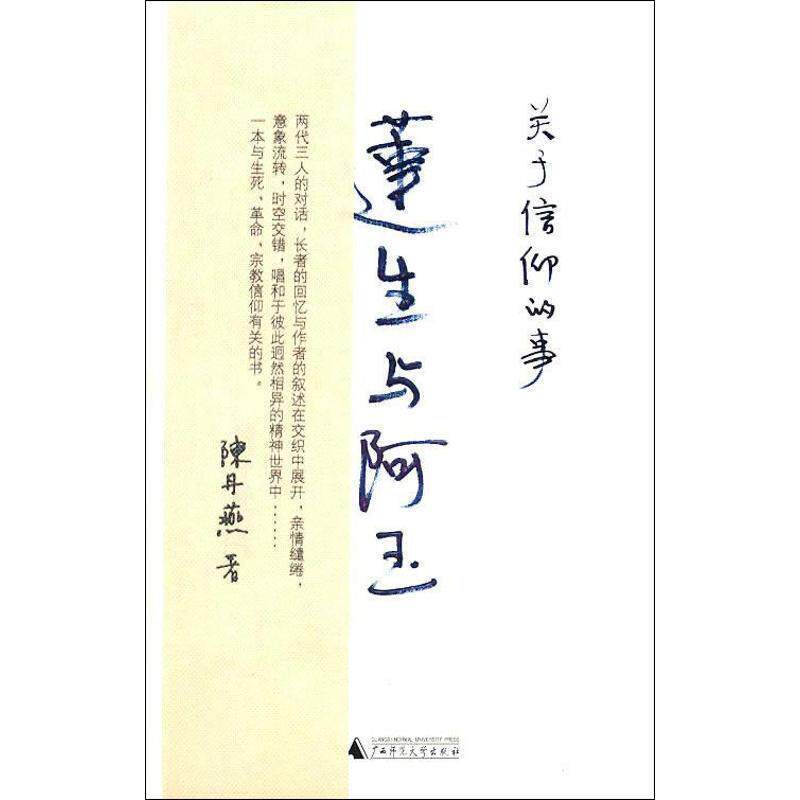 关于信仰的事
蓮生与阿玉
两代三人的对话，长者的回忆与作者的叙述在交织中展开，亲情缱绻，
意象流转，时空交错，唱和于彼此迥然相异的精神世界中……
一本与生死、革命、宗教信仰有关的书。
陳丹燕 著
GUANGXI NORMAL UNIVERSITY PRESS
广西师范大学出版社